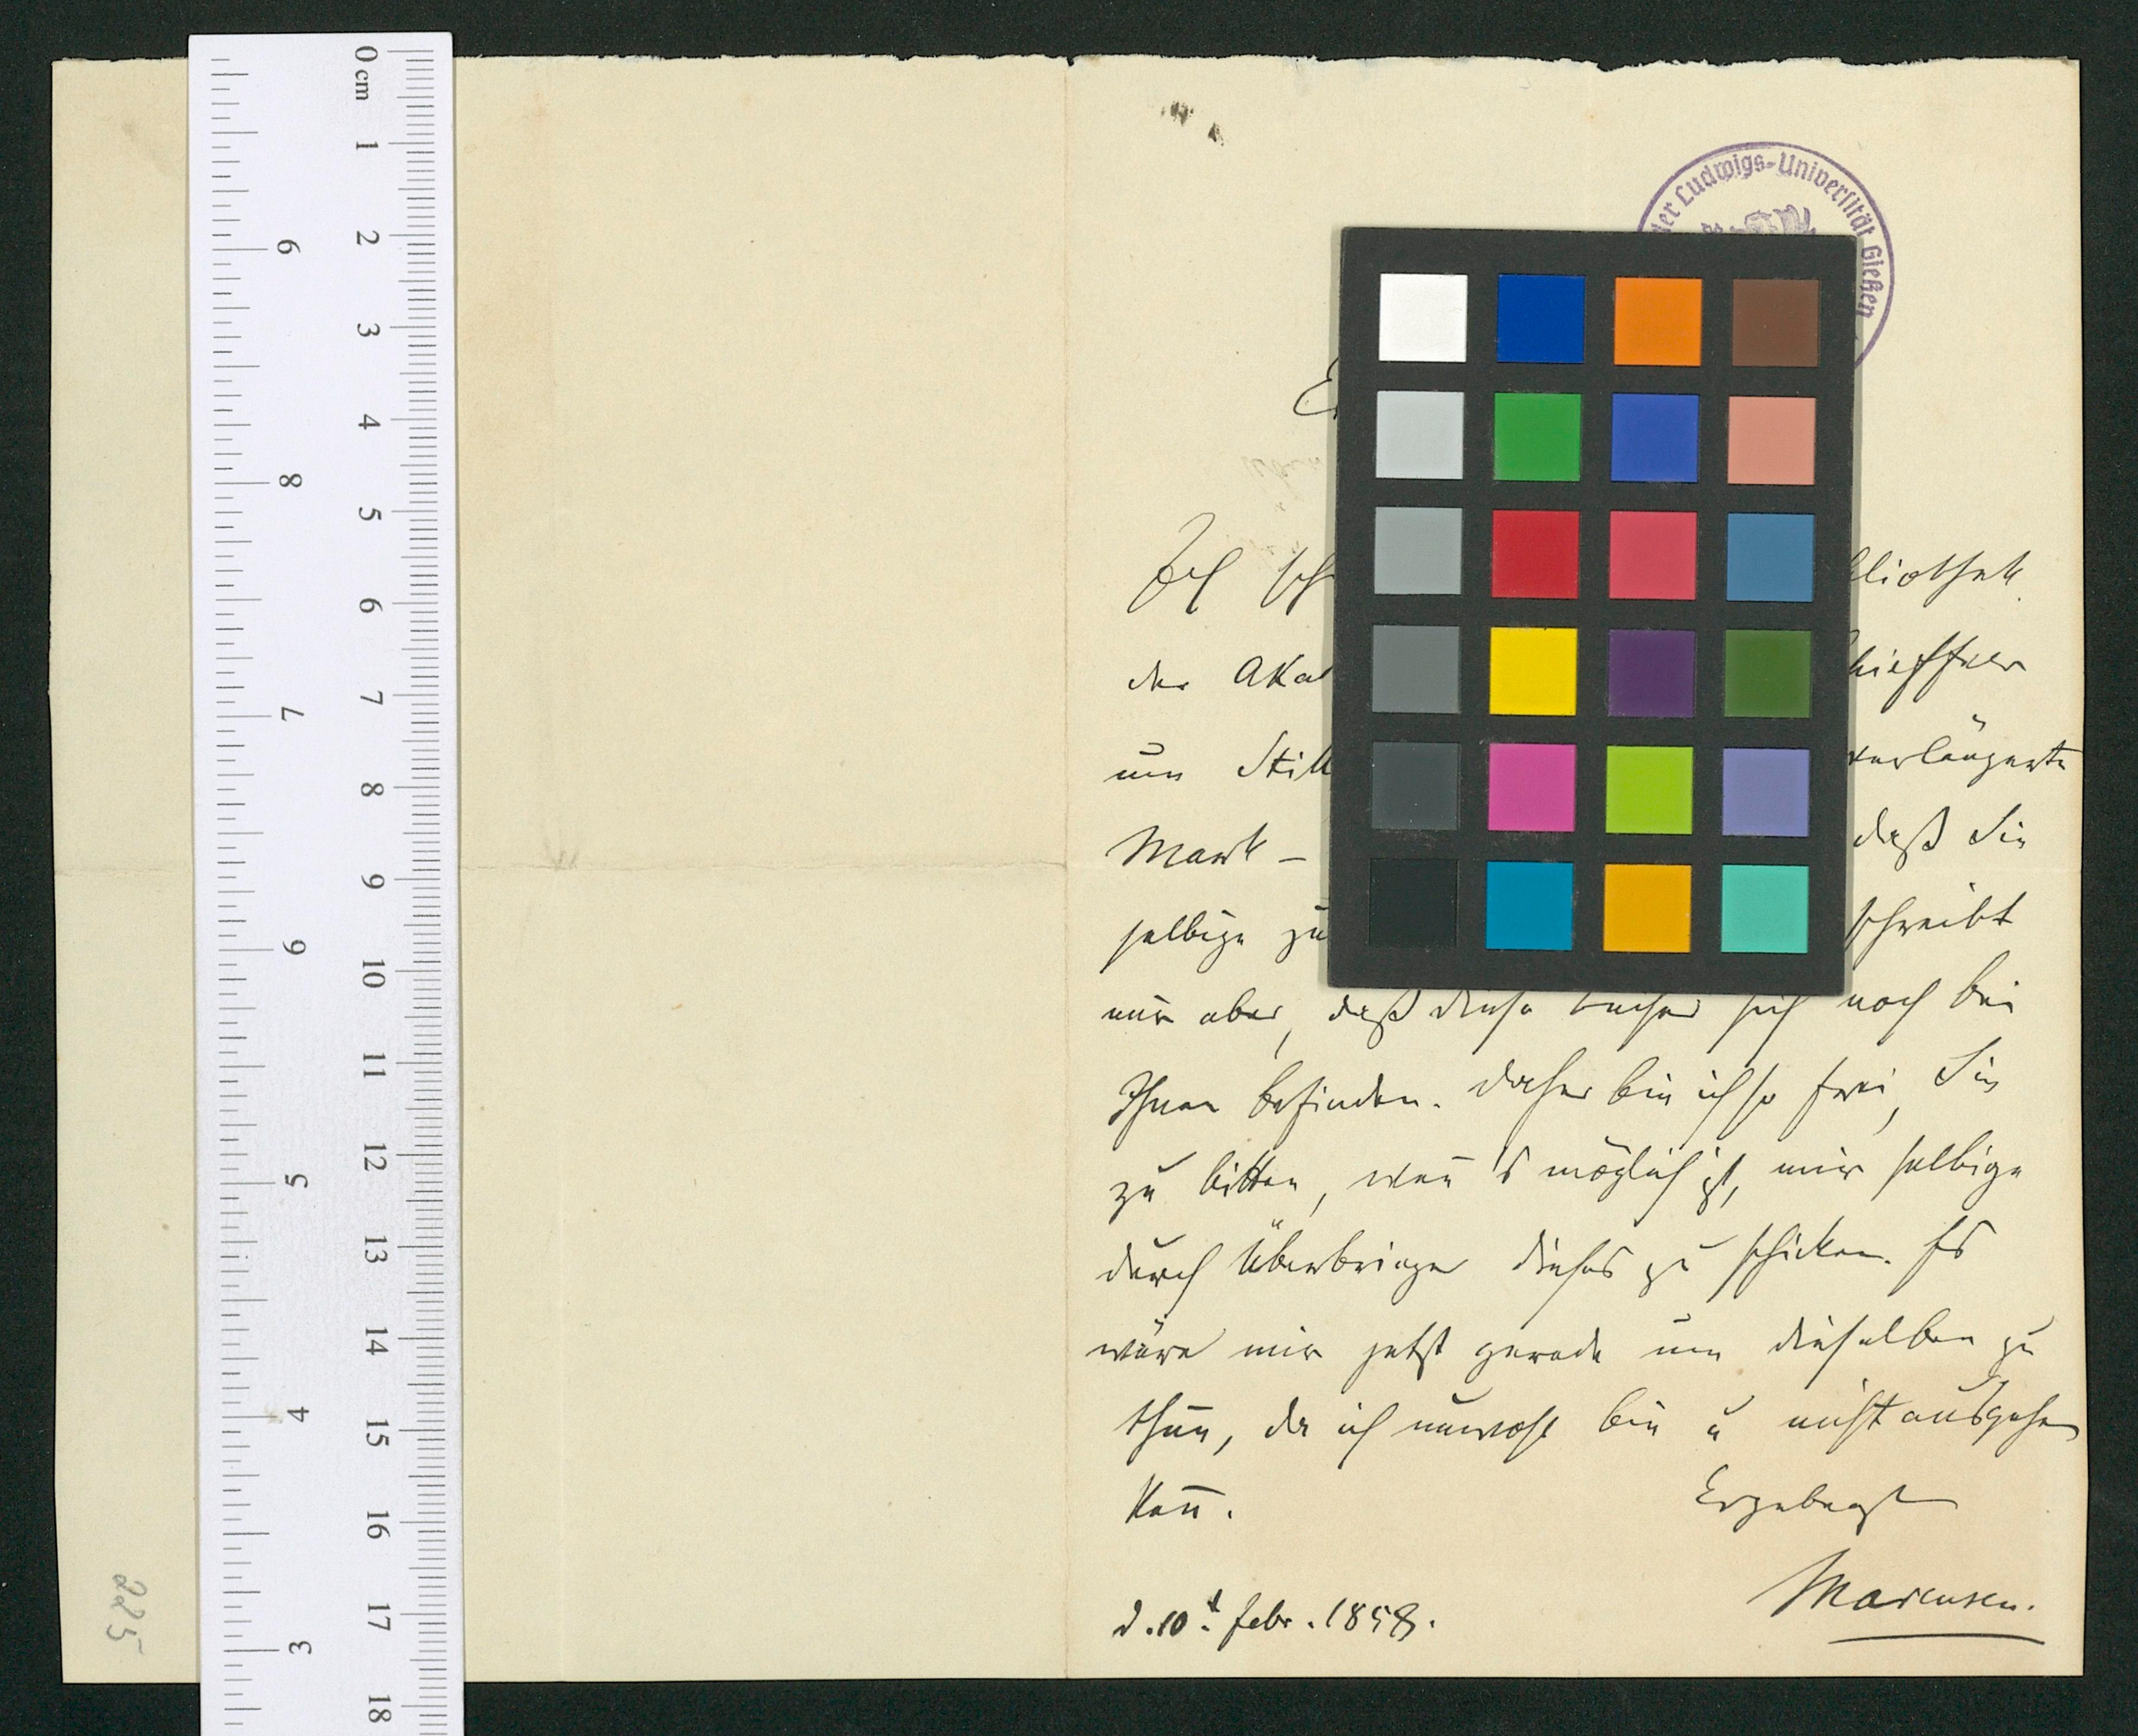 der Ludwigs-Universität Gießen
Ich sch
bliothek
der Akad
hiefner
um Still
verlängerte
Mark –
daß Sie
selbige zu
schreibt
mir aber, daß diese Bücher sich noch bei
Ihnen befinden. Daher bin ich so frei, Sie
zu bitten, wen̄ 's möglich ist, mir selbige
durch Überbringer dieses zu schicken. Es
wäre mir jetzt gerade um dieselben zu
thun, da ich unwohl bin u nicht ausgehen
kan̄.
Ergebenst
d. 10t. Febr. 1858.
Marcusen.
2225
0 cm
1
2
3
4
5
6
7
8
9
10
11
12
13
14
15
16
17
18
9
8
7
6
5
4
3